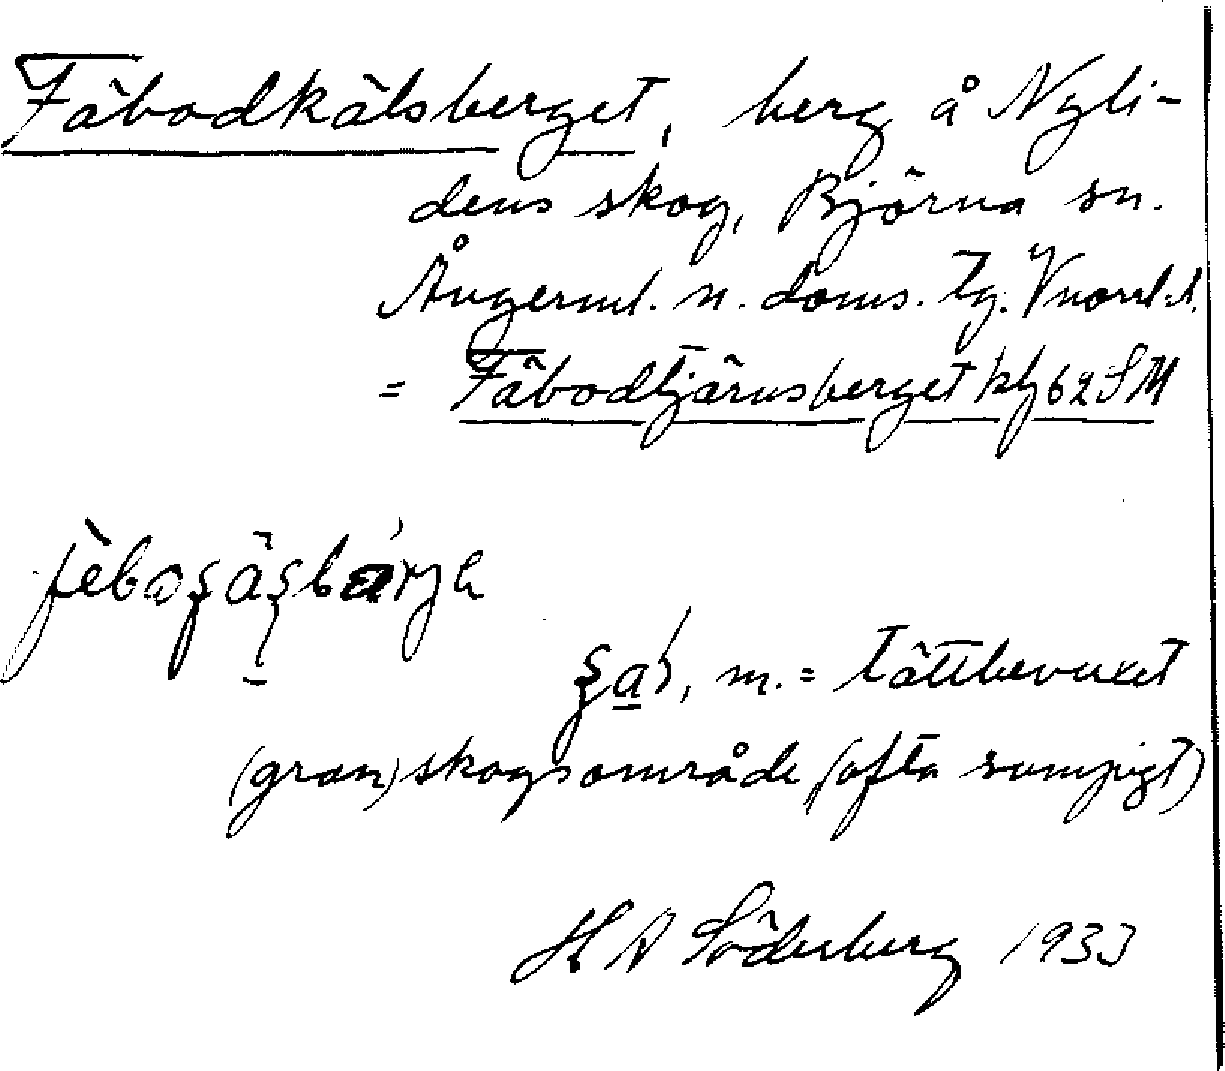 Fäbodkälsberget, berg å Nyli-
dens skog, Björna sn.
Ångerml. n. doms. tg. Vnorrl. l.
= Fäbodtjärnsberget kbl 62 SM
m. = tättbevuxet
(gran)skogsområde (ofta sumpigt)
H A Söderberg 1933